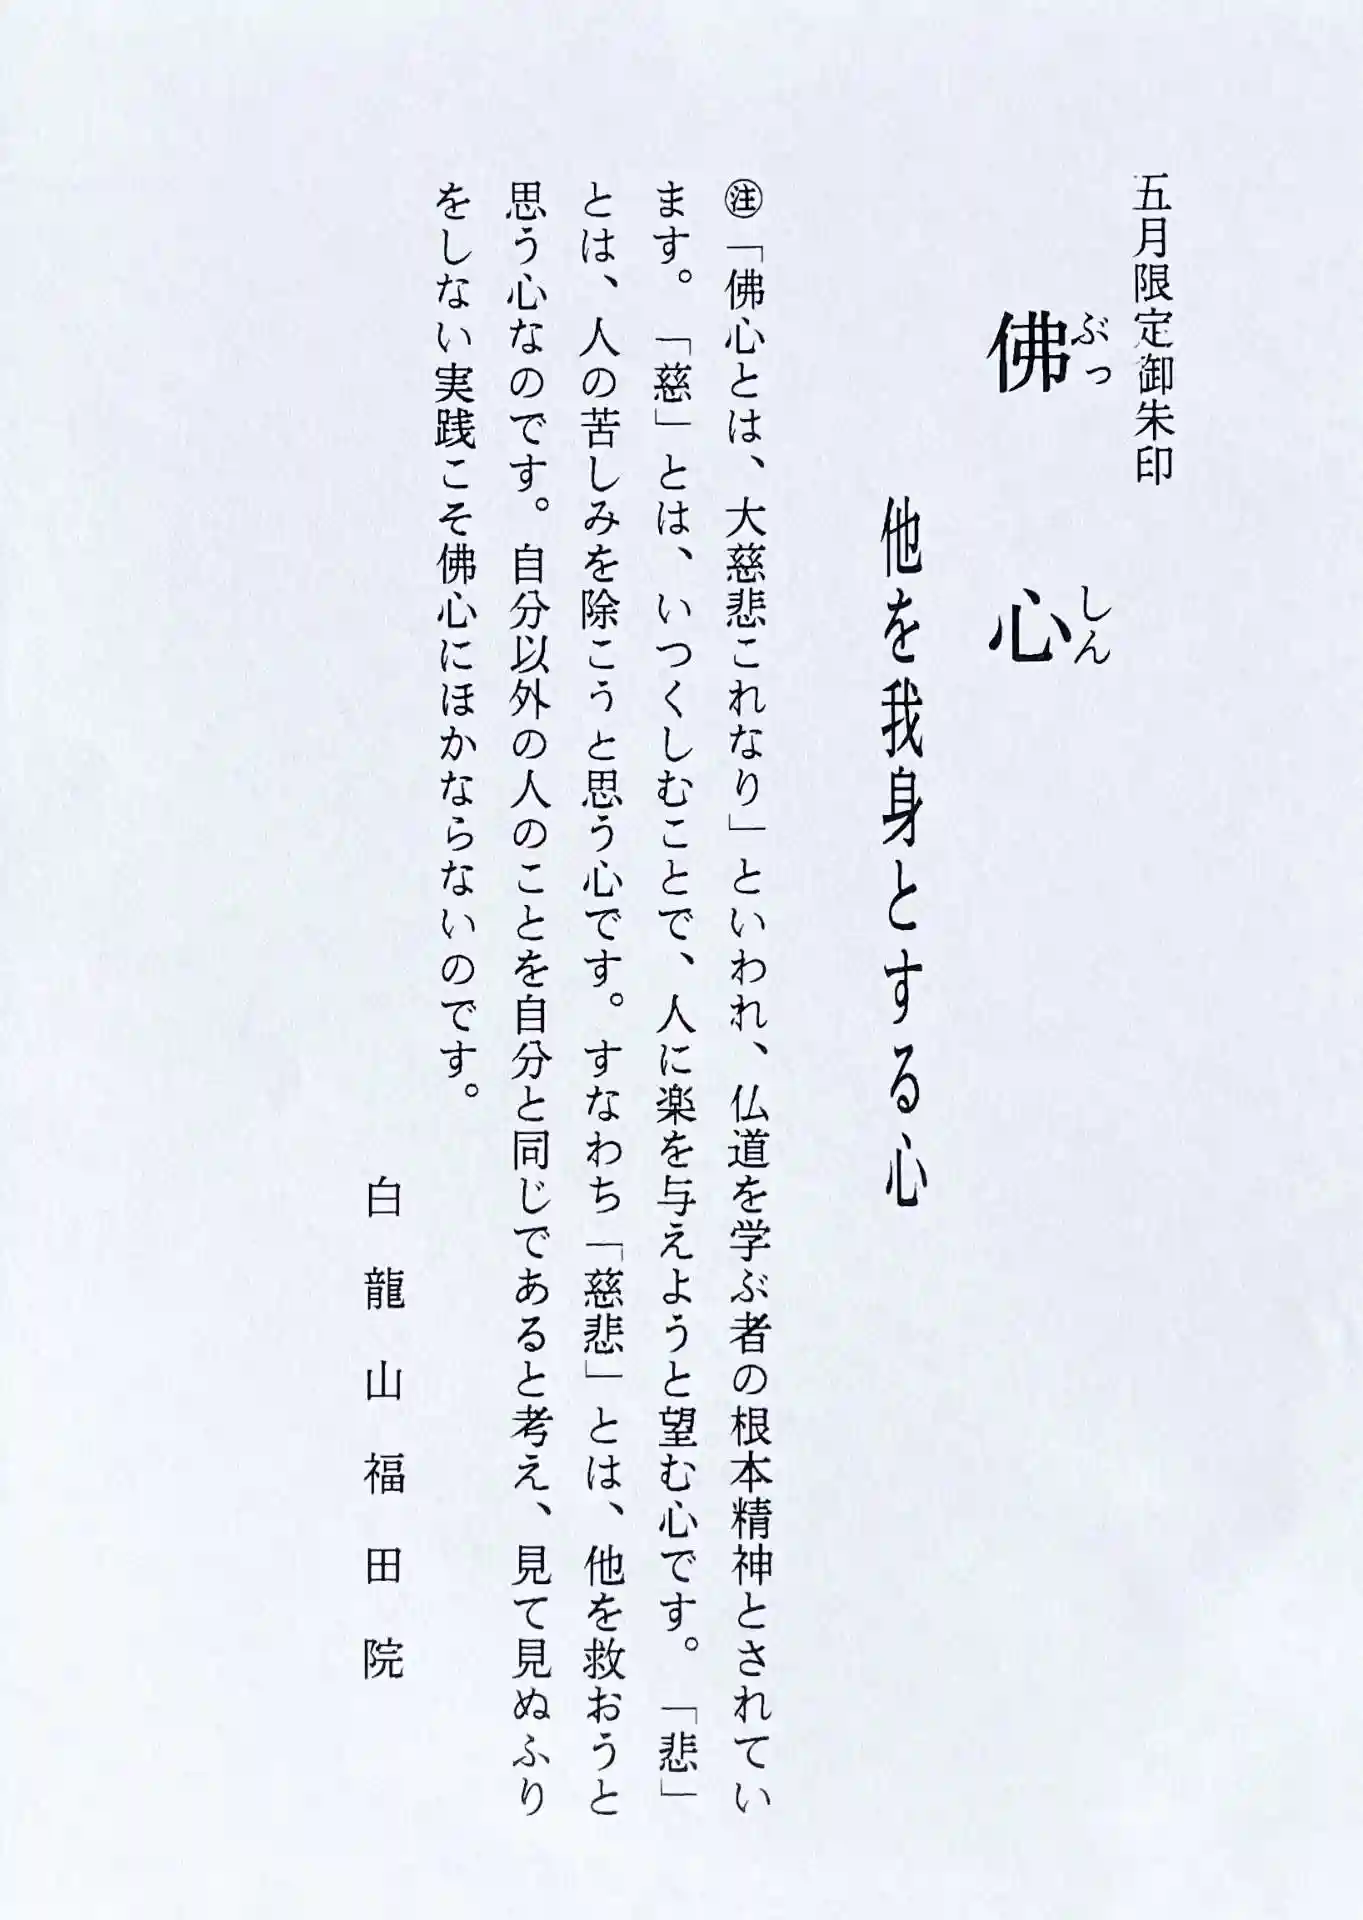 五月限定御朱印
佛心
ぶっしん
他を我身とする心
㊟「佛心とは、大慈悲これなり」といわれ、仏道を学ぶ者の根本精神とされてい
ます。「慈」とは、いつくしむことで、人に楽を与えようと望む心です。「悲」
とは、人の苦しみを除こうと思う心です。すなわち「慈悲」とは、他を救おうと
思う心なのです。自分以外の人のことを自分と同じであると考え、見て見ぬふり
をしない実践こそ佛心にほかならないのです。
白龍山福田院